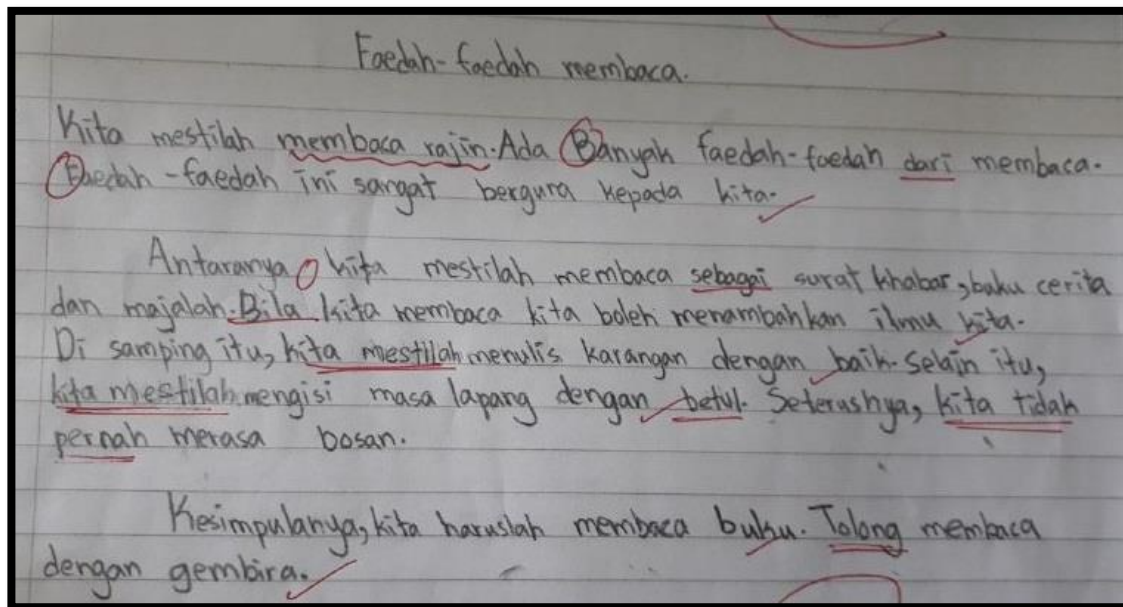 Faedah-faedah membaca.
Kita mestilah membaca rajin. Ada Banyak faedah-faedah dari membaca.
Faedah-faedah ini sangat berguna kepada kita.
Antaranya kita mestilah membaca sebagai surat khabar, buku cerita
dan majalah. Bila kita membaca kita boleh menambahkan ilmu kita.
Di samping itu, kita mestilah menulis karangan dengan baik. Selain itu,
kita mestilah mengisi masa lapang dengan betul. Seterushya, kita tidak
pernah merasa bosan.
Kesimpulanya, kita haruslah membaca buku. Tolong membaca
dengan gembira.